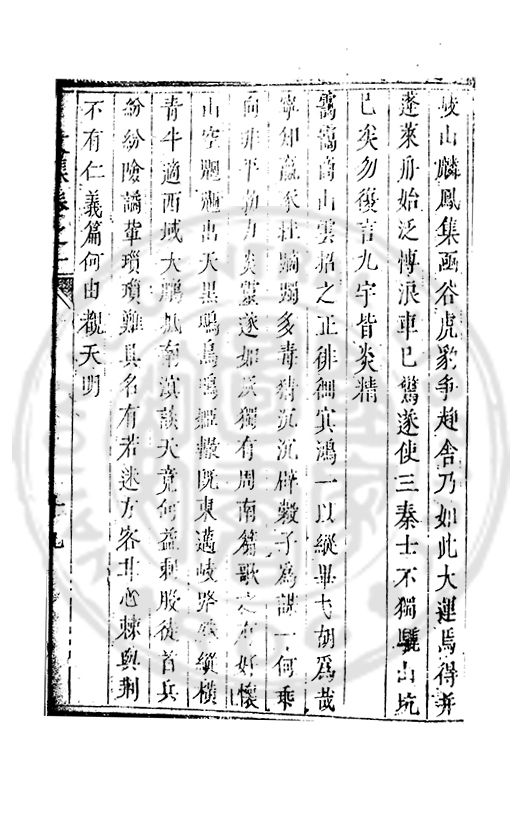 岐山麟鳳集函谷虎豹爭趨舍乃如此大運焉得并
蓬萊舟始泛慱浪車已驚遂使三秦士不獨驪山坑
已矣勿復言九宇皆炎精
靄靄商山雲招之正徘徊賓鴻一以縱畢弋胡爲哉
寧知羸豕壯蹢躅多青猜沉沉辟穀子為謀一何乖
向非平勃力炎靈遂如灰獨有周南篇歌之有好懷
山空魍魎出天黒鵂鳥鳴姬轍既東邁岐路縱橫
青牛適西域大鵬南溟談天竟何益刺股從首兵
紛紛險譎輩瑣瑣難具名有若迷方客中心棘與荆
不有仁義篇何由覩天明
集卷之十
十九